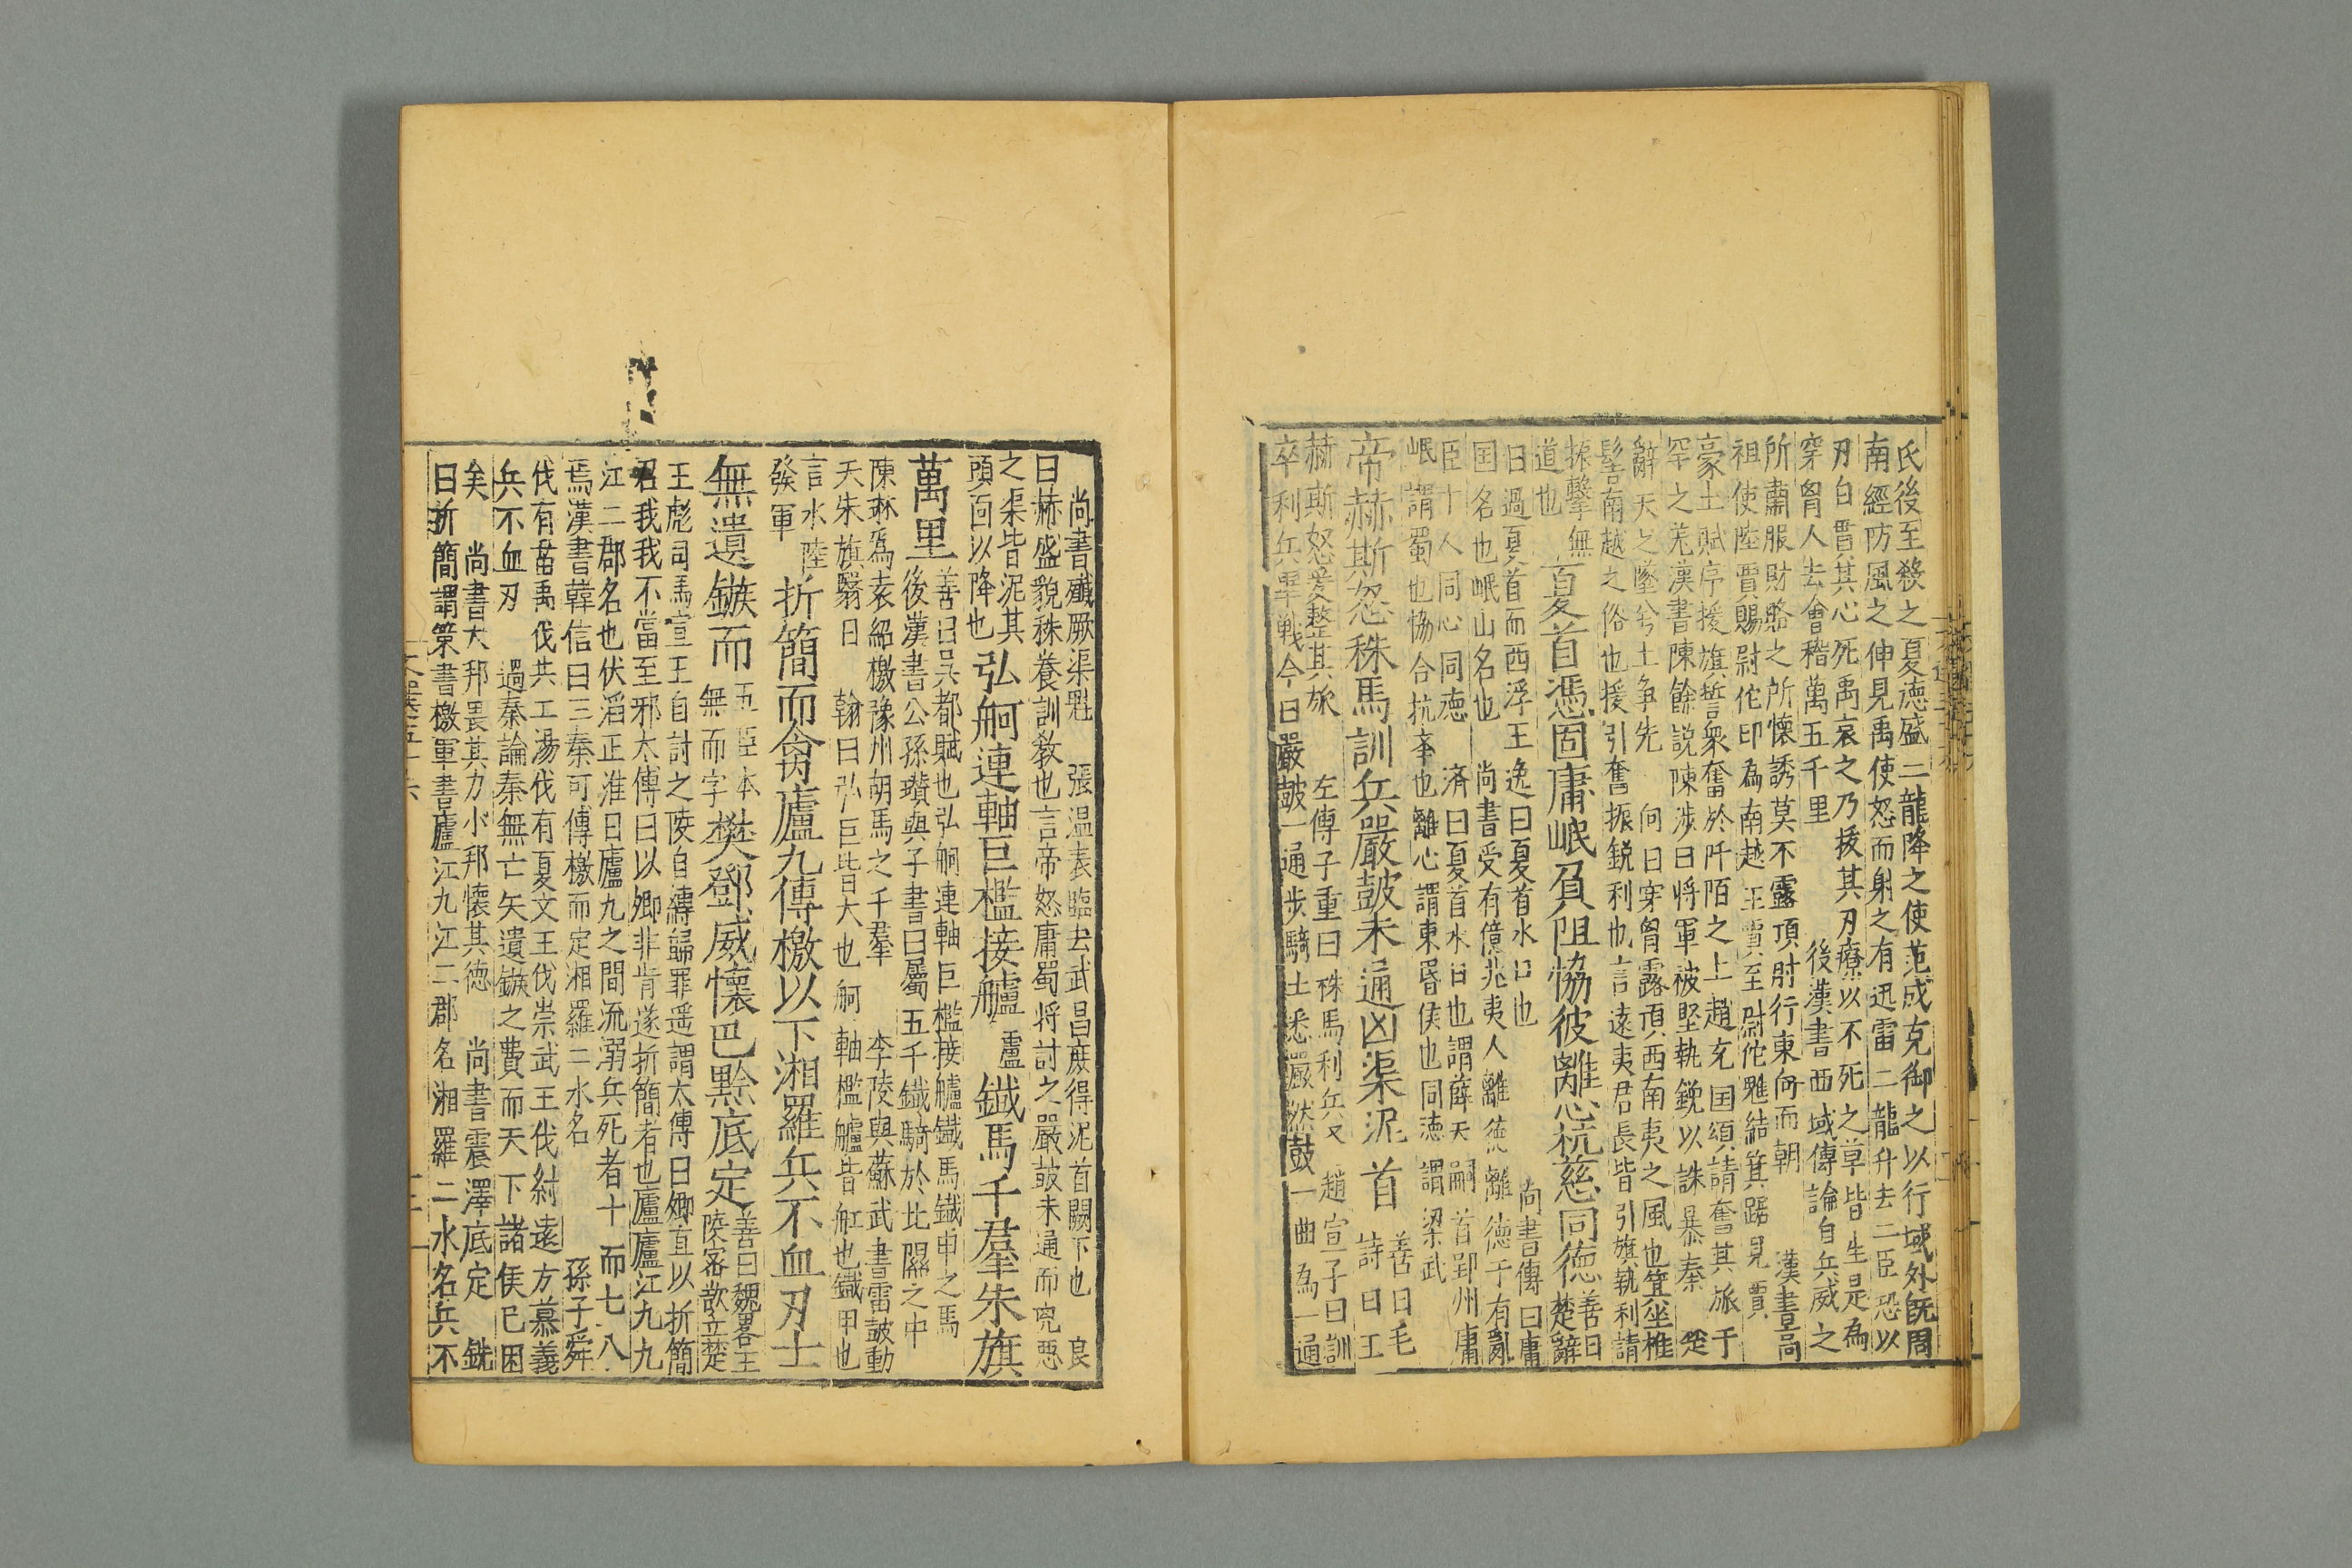 氏後至殺之夏德盛二龍降之使范成克御之以行域外旣周
南經防風之神見禹使怒而射之有迅雷二龍升去二臣恐以
刃自貫其心死禹哀之乃拔其刃療以不死之草皆生是爲
穿胷人去會稽萬五千里 後漢書西域傳論自兵威之
所肅服財賂之所懷誘莫不露頂肘行東向而朝 漢書高
祖使陸賈賜尉佗印爲南越王賈至尉佗魋結箕踞見賈
豪士賦序援旗誓衆奮於阡陌之上趙充国頌請奮其旅于
罕之羌漢書陳餘說陳涉曰將軍被堅執鋭以誅暴秦 楚
辭天之墜兮土争先 向曰穿胷露頂西南夷之風也箕坐椎
髻南越之俗也援引奮振鋭利也言遠夷君長皆引旗執利請
振擊無
道也
夏首憑固庸岷負阻恊彼離心抗慈同德
善曰
楚辭
曰過夏首而西浮王逸曰夏首水口也 尚書傳曰庸
国名也岷山名也 尚書受有億兆夷人離心離德予有亂
臣十人同心同德 済曰夏首水首也謂薛天嗣首郢州庸
岷謂蜀也恊合抗牽也離心謂東昬侯也同德謂梁武
帝赫斯怒秣馬訓兵嚴皷未通凶渠泥首
善曰毛
詩曰王
赫斯怒爰整其旅 左傳子重曰秣馬利兵又 趙宣子曰訓
卒利兵畢戦今日嚴皷一通步騎士悉嚴然鼓一曲爲一通
尚書殲厥渠魁 張温表臨去武昌庶得泥首闕下也 良
曰赫盛貌秣養訓教也言帝怒庸蜀将討之嚴皷未通而兇惡
之渠皆泥其
頭面以降也
弘舸連軸巨檻接艫
盧
鐡馬千羣朱旗
萬里
善曰吴都賦也弘舸連軸巨檻接艫鐡馬鐡甲之馬
後漢書公孫瓚與子書曰屬五千鐡騎於北隰之中
陳琳爲袁紹檄豫州胡馬之千羣 李陵與蘇武書雷皷動
天朱旗翳日 翰曰弘巨皆大也舸軸檻艫皆舡也鐡甲也
言水陸
發軍
折簡而禽廬九傳檄以下湘羅兵不血刃士
無遺鏃而
五臣本
無而字
樊鄧威懷巴黔底定
善曰魏畧王
陵密欲立楚
王彪司馬宣王自討之陵自縛歸罪遥謂太傅曰卿直以折簡
召我我不當至邪太傅曰以卿非肯遂折簡者也廬廬江九九
江二郡名也伏滔正淮曰廬九之間流溺兵死者十而七八
焉漢書韓信曰三秦可傳檄而定湘羅二水名 孫子舜
伐有苗禹伐共工湯伐有夏文王伐崇武王伐紂遠方慕義
兵不血刃 過秦論秦無亡矢遺鏃之費而天下諸侯已困
矣 尚書大邦畏其力小邦懐其德 尚書震澤底定 銑
曰折簡謂策書檄軍書廬江九江二郡名湘羅二水名兵不